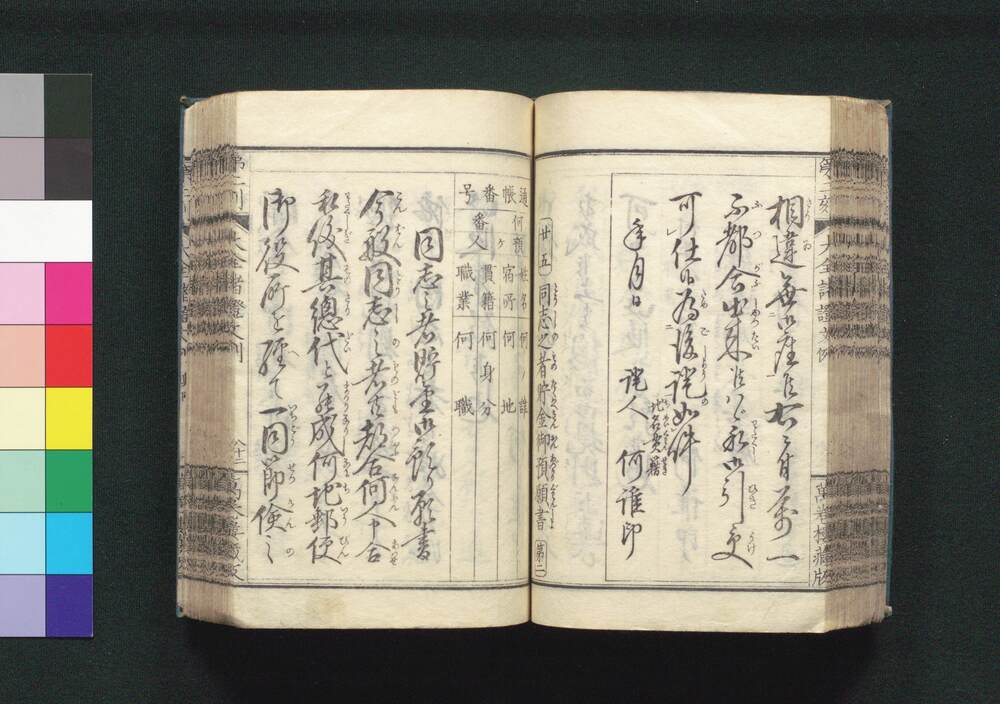 相違無御座候右ニ付萬一
不都合出来候ハヾ私御引受
可仕仍為後証如件
年月日
証人 何誰印
地名貫籍
廿五 同志之者貯金御預願書 第二
通帳番号
何預ケ番人
姓名 何ノ誰
宿所 何地
貫籍 何身分
職業 何職
同志之者貯金御預願書
今般同志之者共都合何人申合
私儀其總代と相成何地郵便
御役所を経て一同節儉之
萬巻樓藏版